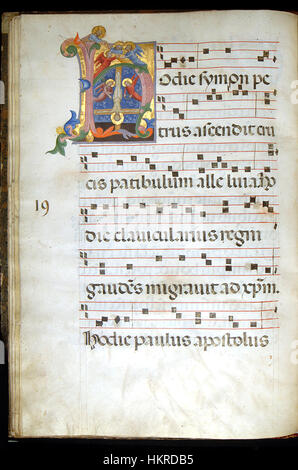 Hodie symon pe
trus ascendit cru
cis patibulum alleluia ho
die clavicularius regni
gaudens migravit ad xpm.
Hodie paulus apostolus
19
alamy stock photo
HKRDB5